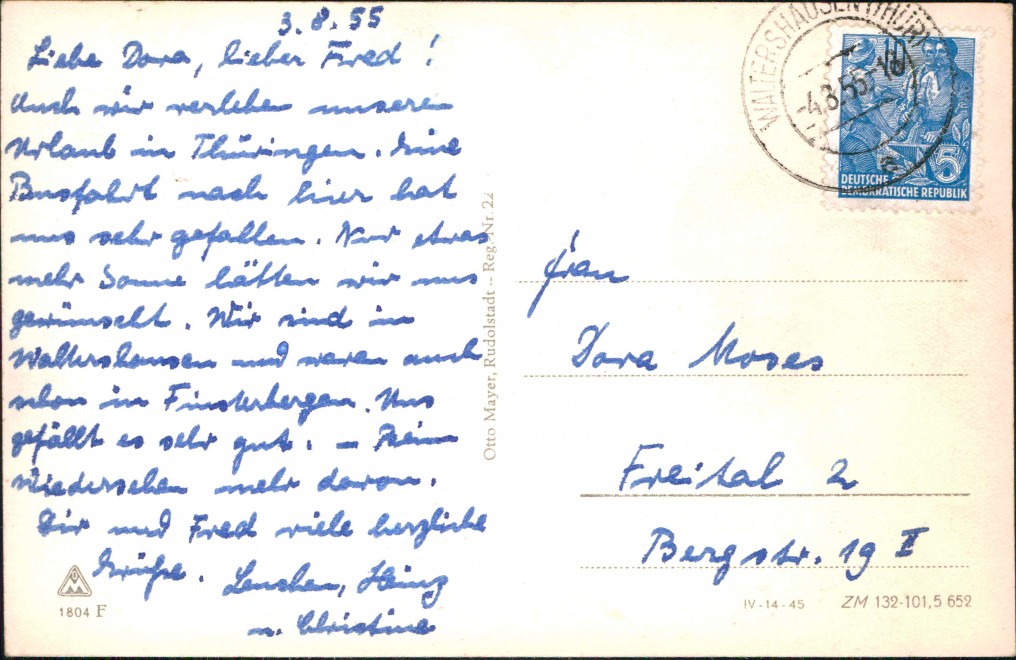 3.8.55
Liebe Dora, lieber Fred!
Auch wir verleben unseren
Urlaub in Thüringen. Eine
Busfahrt nach hier hat
uns sehr gefallen. Nur etwas
mehr Sonne hätten wir uns
gewünscht. Wir sind in
Waltershausen und waren auch
schon in Finsterbergen. Uns
gefällt es sehr gut. – Beim
Wiedersehen mehr davon.
Dir und Fred viele herzliche
Grüße. Lenchen, Heinz
u. Christine
1804 F
Otto Mayer, Rudolstadt -- Reg. Nr. 22
WALTERSHAUSEN (THÜR)
-4.8.55-18
10
5
DEUTSCHE
DEMOKRATISCHE REPUBLIK
Frau
Dora Moses
Freital 2
Bergstr. 19 II
IV-14-45 ZM 132-101,5 652